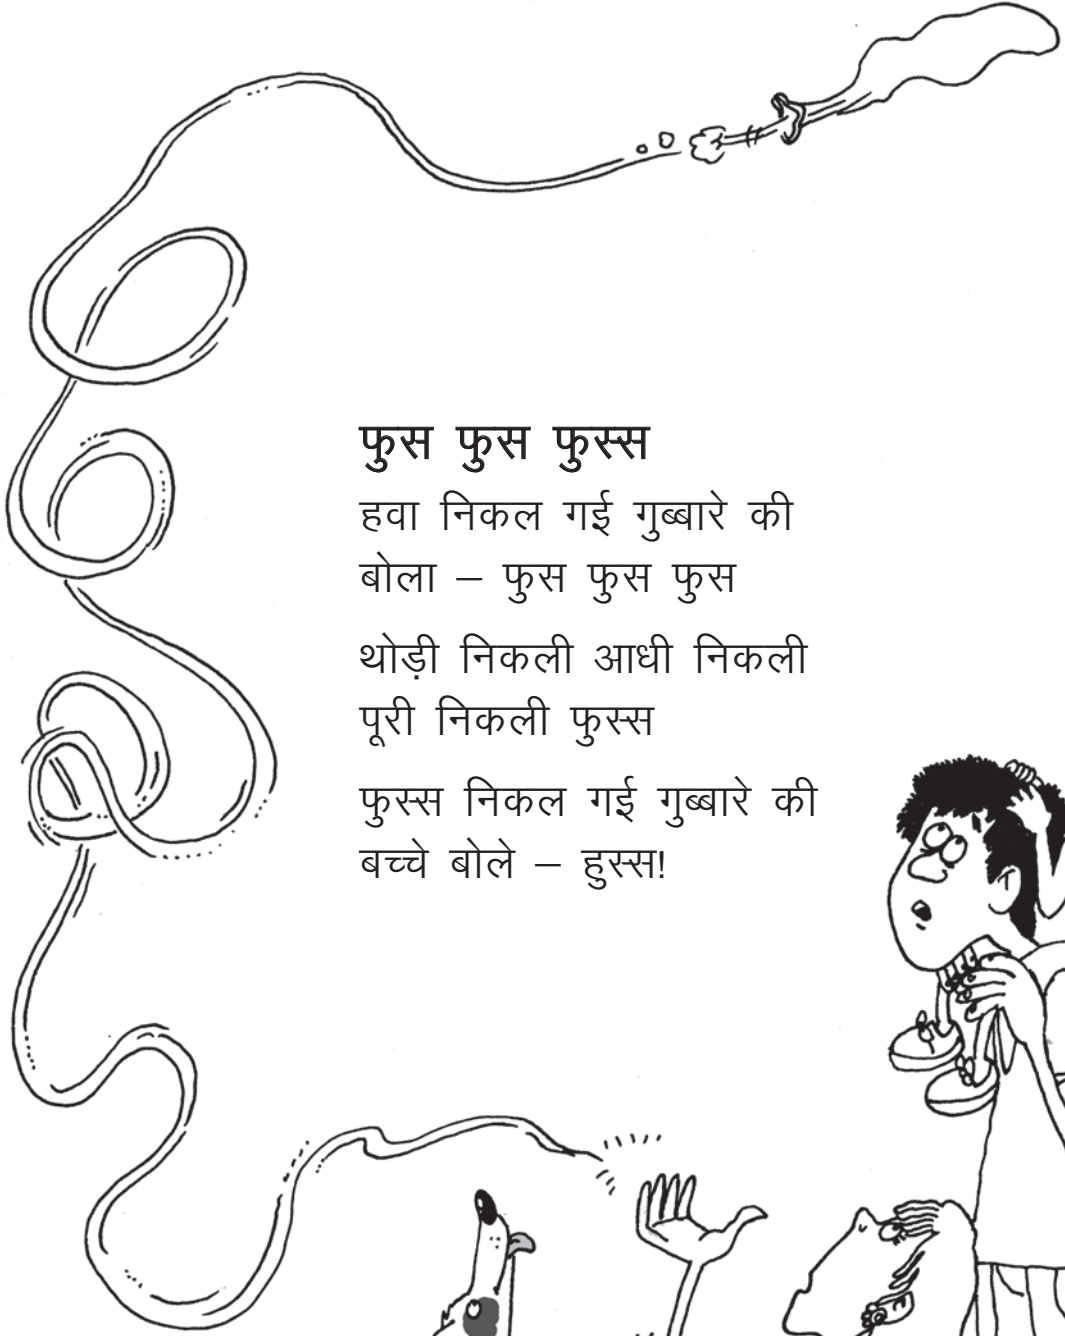 फुस फुस फुस्स
हवा निकल गई गुब्बारे की
बोला – फुस फुस फुस
थोड़ी निकली आधी निकली
पूरी निकली फुस्स
फुस्स निकल गई गुब्बारे की
बच्चे बोले – हुस्स!